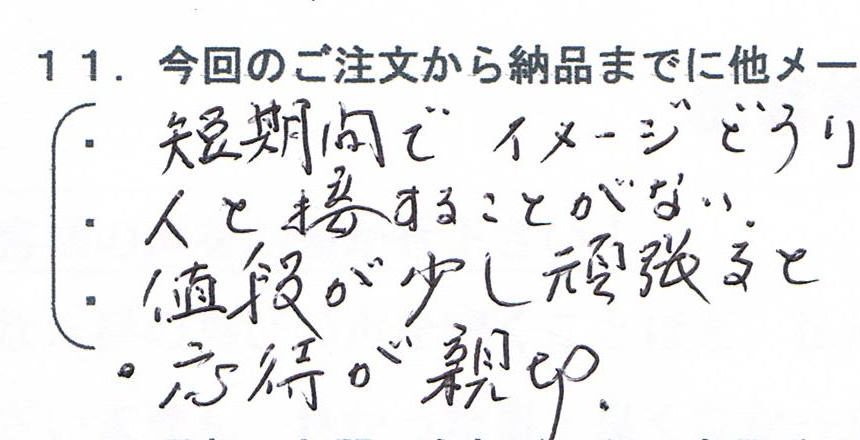 11. 今回のご注文から納品までに他メー
・短期間でイメージどうり
・人と接することがない.
・値段が少し頑張ると
・応待が親切.